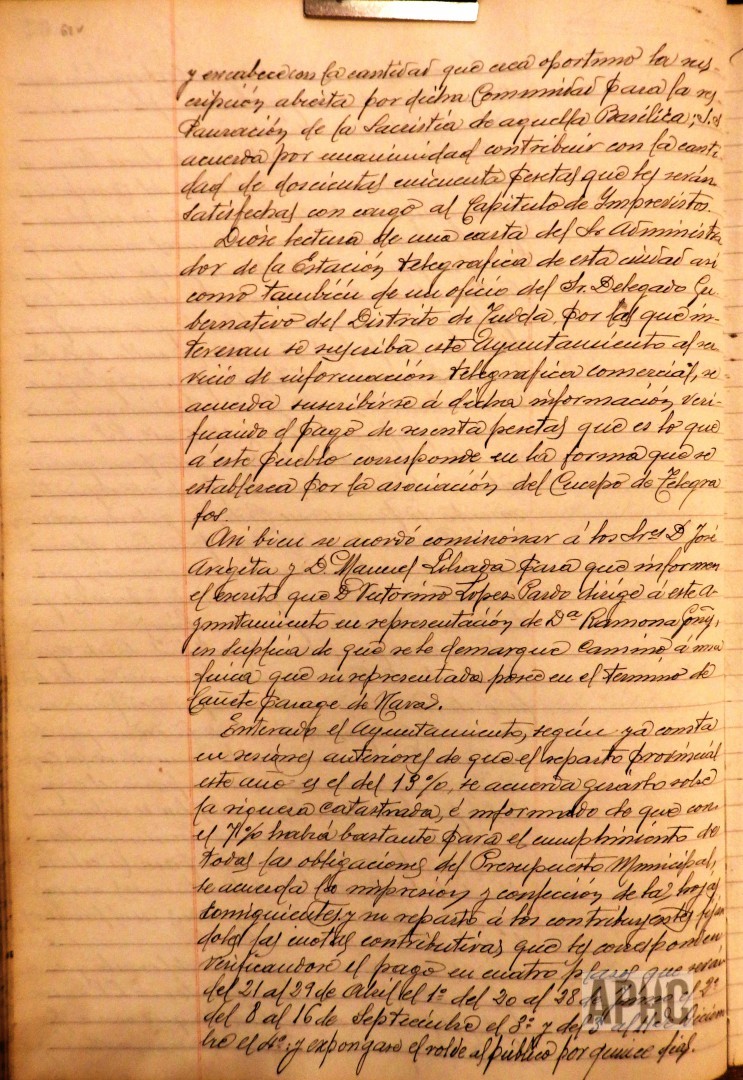 y encabece con la cantidad que crea oportuno la sus-
cripción abierta por dicha Comunidad para la res-
tauración de la Sacristia de aquella Basilica; Se
acuerda por unanimidad contribuir con la canti-
dad de doscientas cincuenta pesetas que les serán
satisfechas con cargo al Capitulo de Imprevistos.
Diose lectura de una carta del Sr. Administra
dor de la Estación telegrafica de esta ciudad asi
como también de un oficio del Sr. Delegado Gu-
bernativo del Distrito de Tudela, por las que in-
teresan se suscriba este Ayuntamiento al ser-
vicio de información telegrafica comercial, se
acuerda suscribirse á dicha información, veri-
ficando el pago de sesenta pesetas que es lo que
á este pueblo corresponde en la forma que se
establezca por la asociación del Cuerpo de Telegra
fos.
Asi bien se acordó comisionar á los Sres D. José
Arigita y D. Manuel Librada para que informen
el escrito que D. Victorino Lopez Pardo dirige á este A-
yuntamiento en representación de Dª Ramona
en suplica de que se le demarque camino á una
finca que su representada posee en el termino de
Cañete parage de Nava.
Enterado el Ayuntamiento, según ya consta
en sesiones anteriores de que el reparto provincial
este año es el del 13%, se acuerda girarlo sobre
la riqueza catastrada, é informado de que con
el 7% habrá bastante para el cumplimiento de
todas las obligaciones del Presupuesto Municipal,
se acuerda la impresión y confección de las hojas
consiguientes y su reparto á los contribuyentes fijan
doles las cuotas contributivas que les corresponden
verificandose el pago en cuatro plazos que serán
del 21 al 29 de Abril el 1º del 20 al 28 de el 2º
del 8 al 16 de Septiembre el 3º y del al de Diciem
bre el 4º; y expongase el rolde al público por quince dias.
APHC